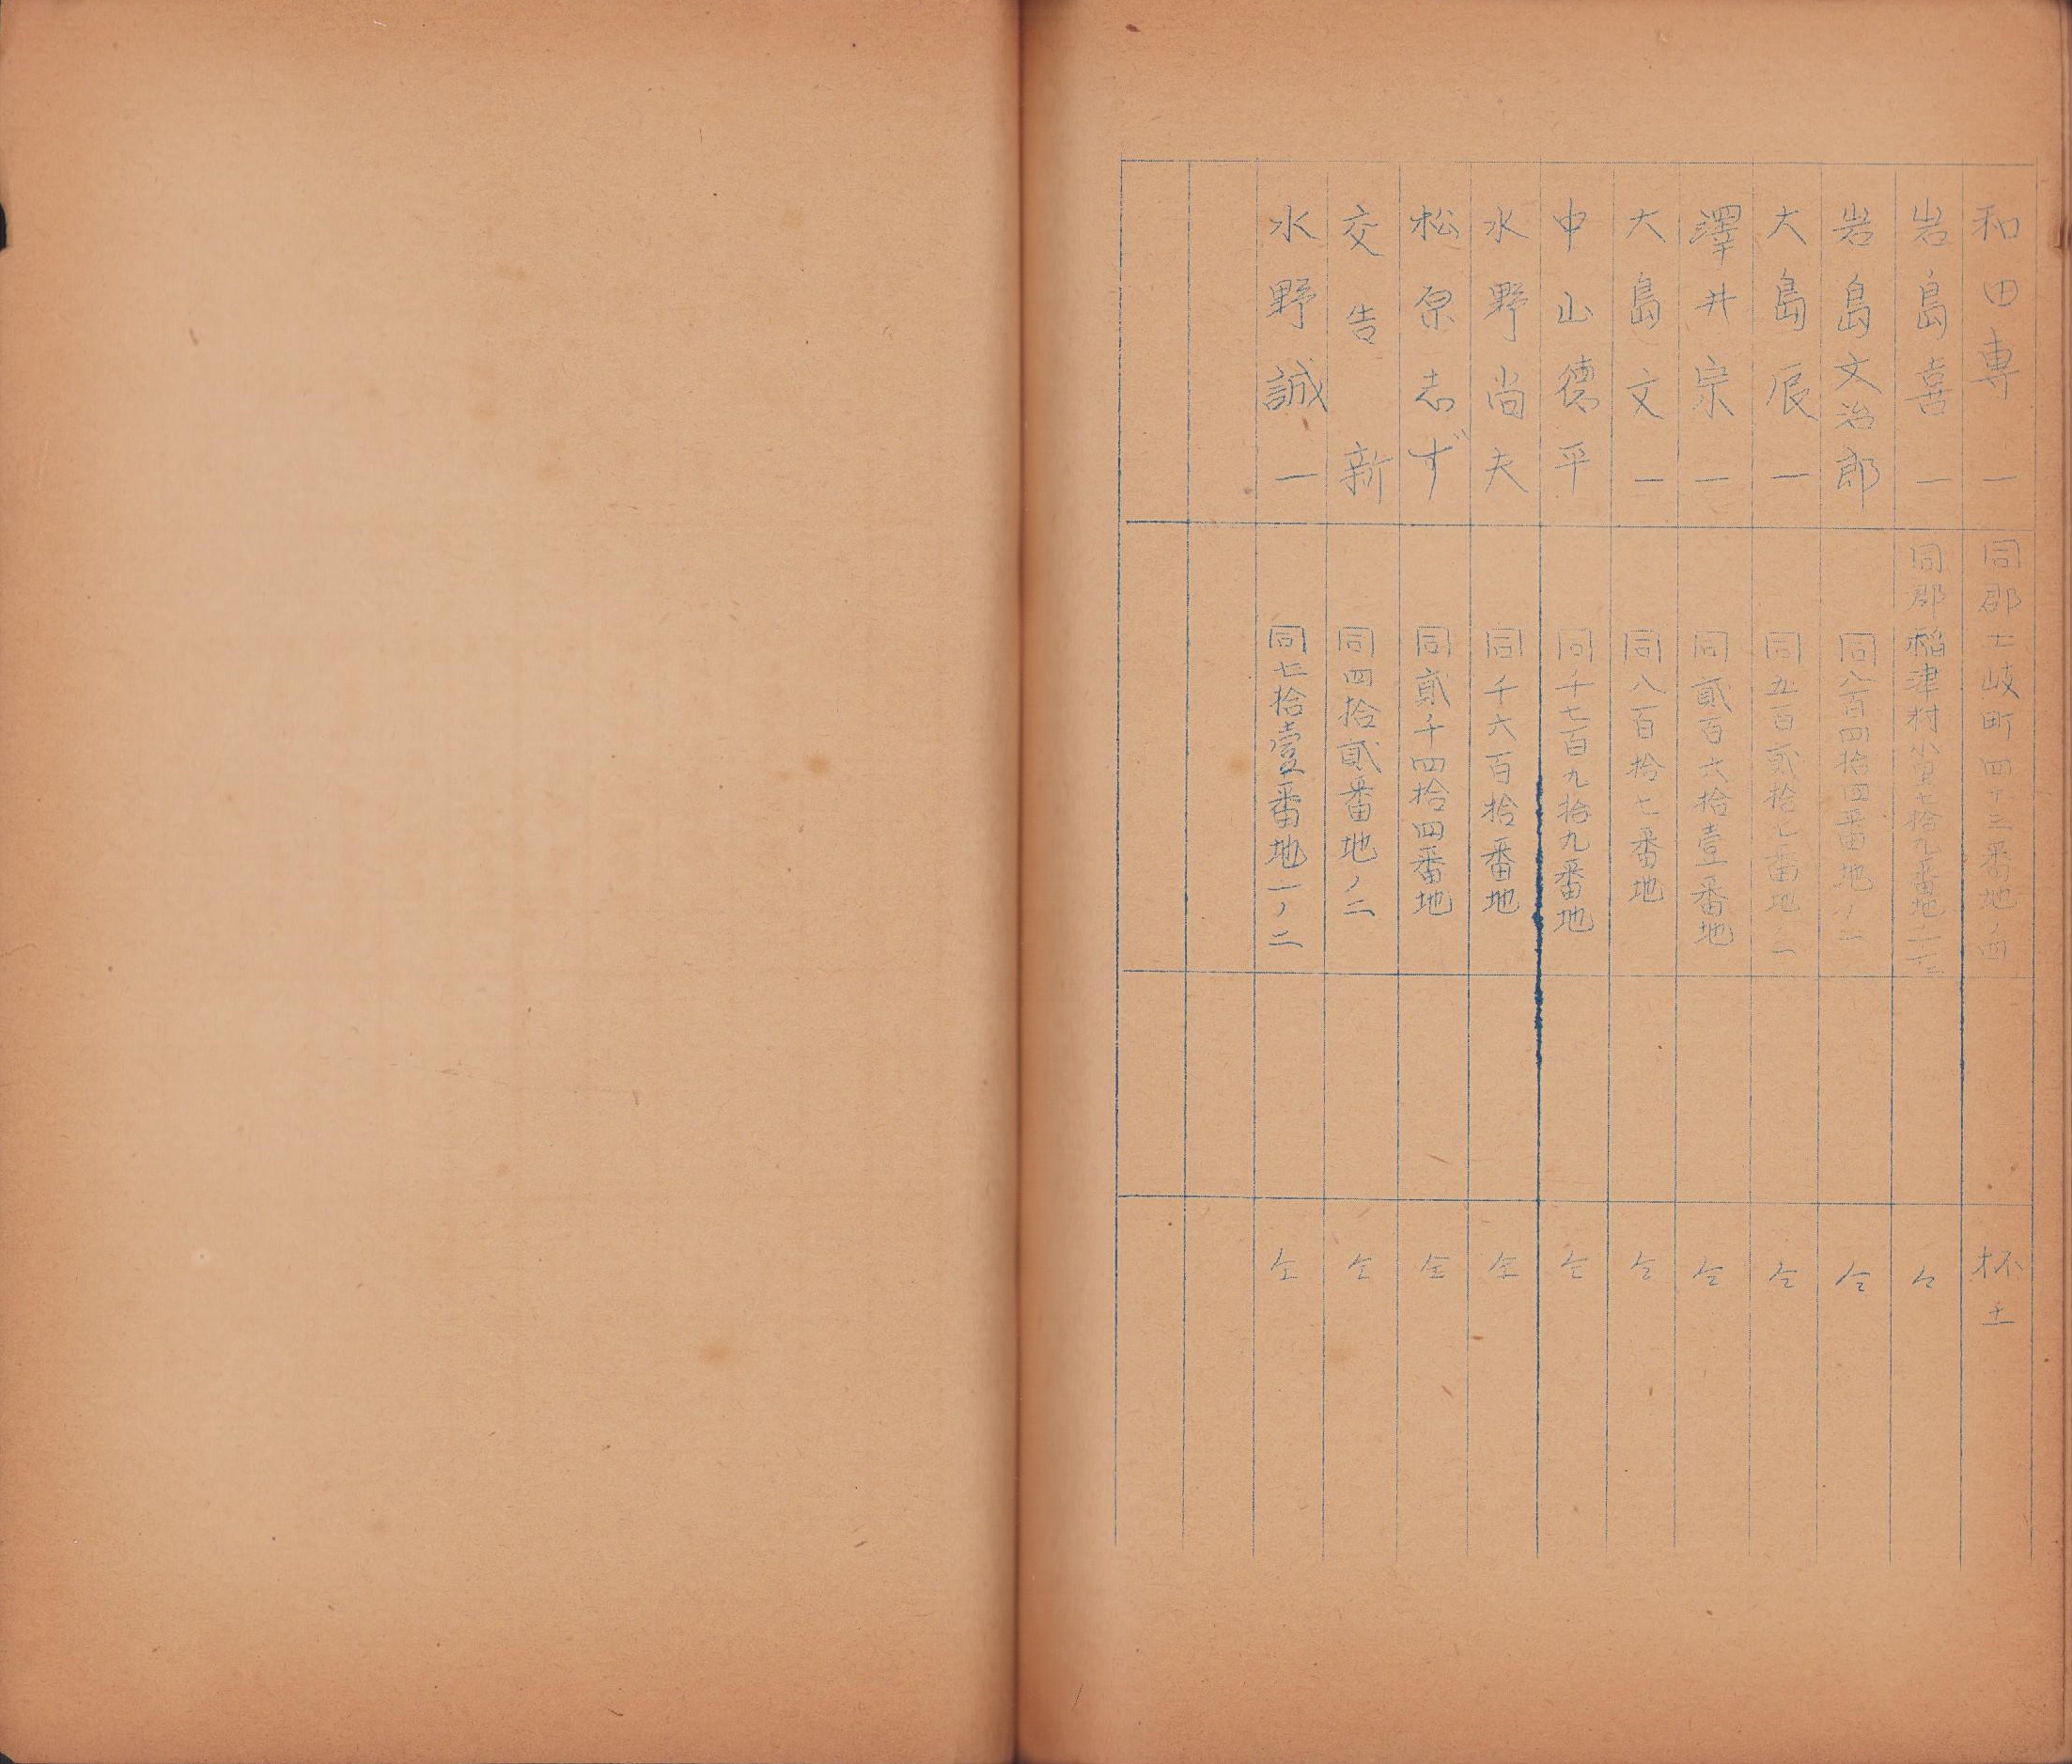 和田専一 同郡土岐町四十三番地ノ四 杯土
岩島喜一 同郡稲津村小里七拾九番地 仝
岩島文治郎 同八百四拾四番地ノ二 仝
大島辰一 同五百貳拾七番地ノ二 仝
澤井宗一 同貳百六拾壹番地 仝
大島文一 同八百拾七番地 仝
中山德平 同千七百九拾九番地 仝
水野尚夫 同千六百拾番地 仝
松原志ず 同貳千四拾四番地 仝
交告新 同四拾貳番地ノ二 仝
水野誠一 同七拾壹番地一ノ二 仝